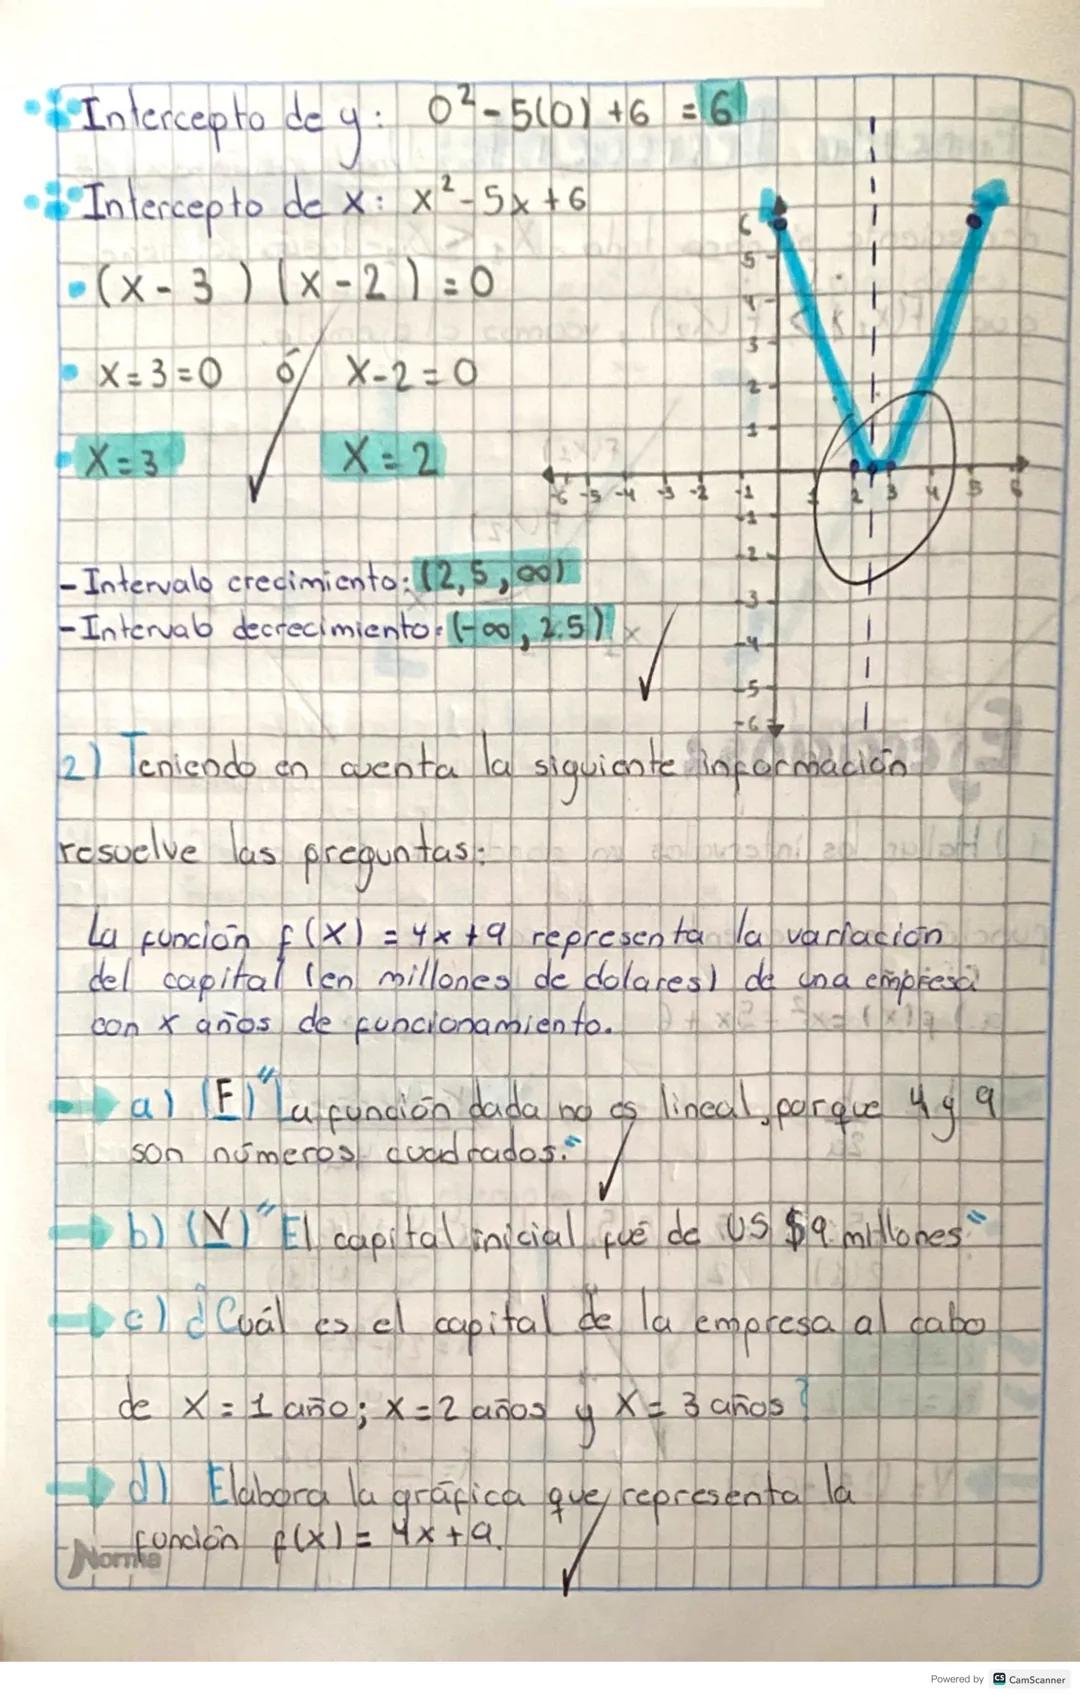 Intercepto de y: 0² - 5(0) + 6 = 6
Intercepto de x: x² - 5x + 6
(x - 3) (x - 2) = 0
x = 3 = 0 ó x - 2 = 0
x = 3 x = 2
6
5
4
3
2
1
-6 -5 -4 -3 -2 -1 1 2 3 4 5 6
-1
-2
-3
-4
-5
-6
- Intervalo crecimiento: (2,5, ∞)
- Intervalo decrecimiento: (-∞, 2.5)
2) Teniendo en cuenta la siguiente información
resuelve las preguntas:
La función f(x) = 4x + 9 representa la variación
del capital (en millones de dolares) de una empresa
con x años de funcionamiento.
a) (F) "La función dada no es lineal, porque 4 y 9
son números cuadrados."
b) (V) "El capital inicial fue de US $9 millones"
c) ¿Cuál es el capital de la empresa al cabo
de x = 1 año; x = 2 años y x = 3 años?
d) Elabora la gráfica que representa la
función f(x) = 4x + 9.
Norma
Powered by CS CamScanner